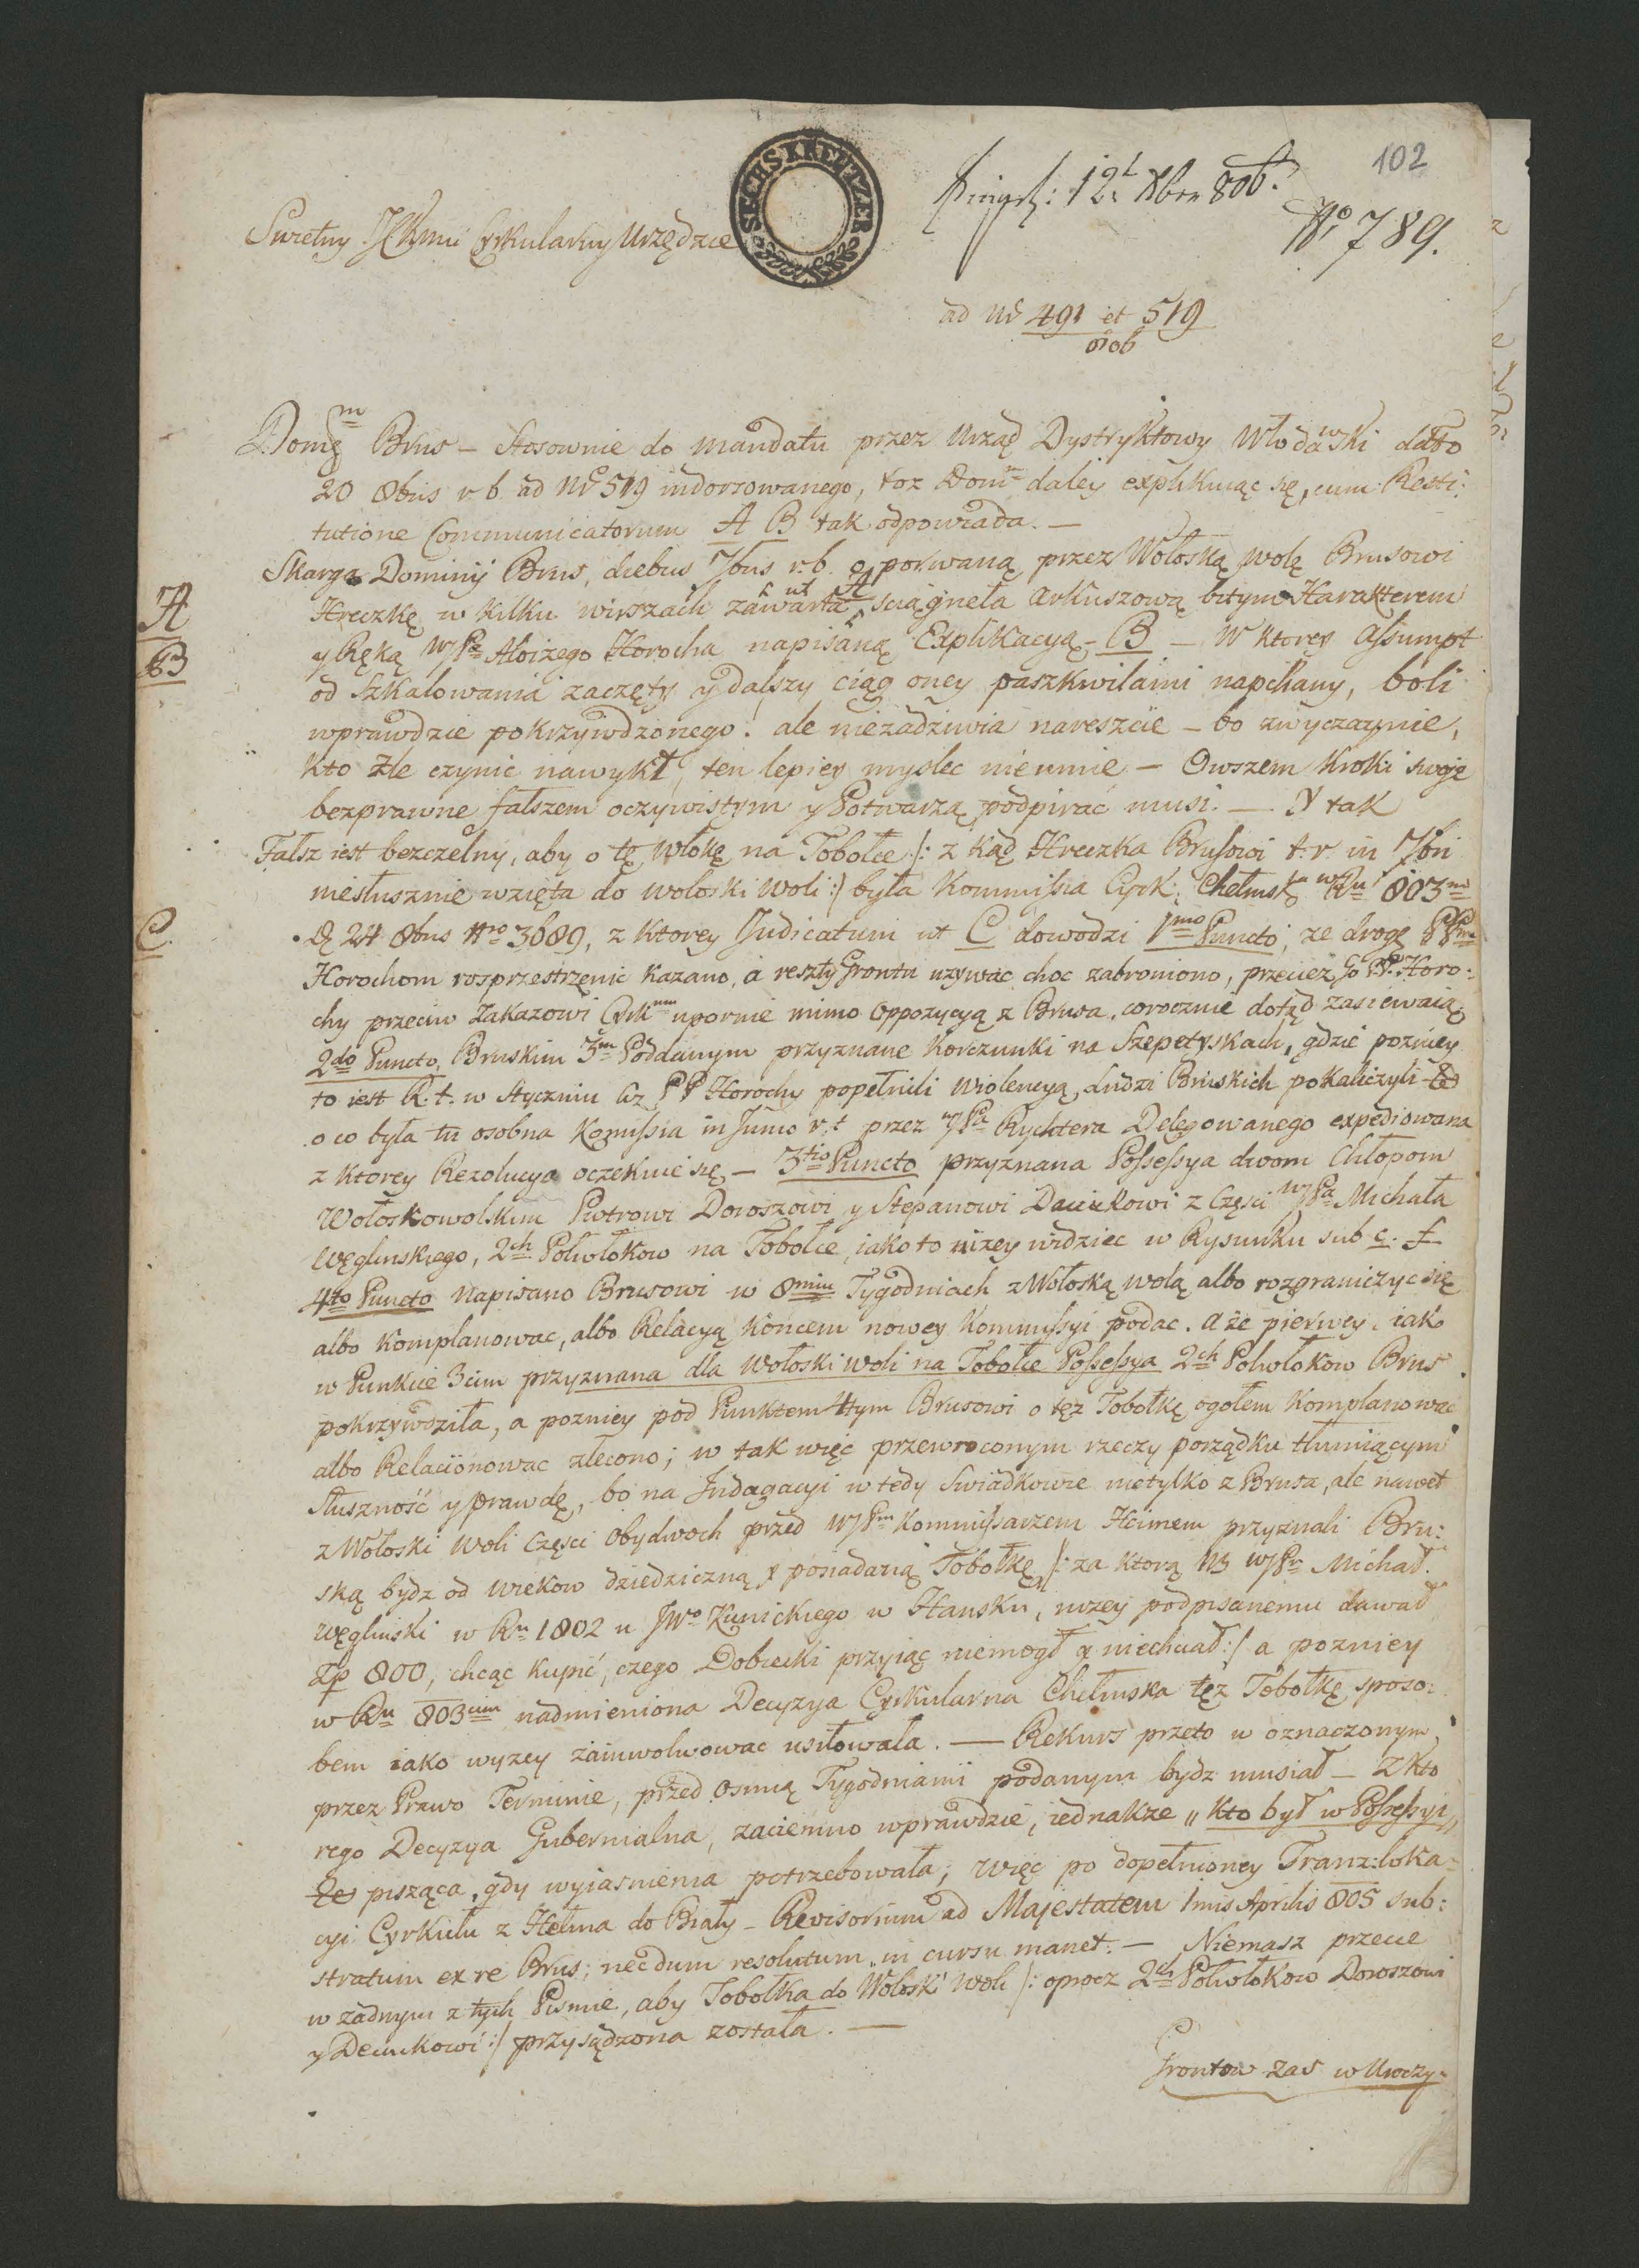 102
SECHS KREUTZER
12 Xbr 806.
Swietny Cyrkularny Urzędzie
No 789.
ad Nr 491 et 519
806
Domm Brus – stosownie do mandatu przez Urząd Dystryktowy Włodawski datto
20 8bris r b ad Nr 519 indorsowanego, toz Domm daley explikuiąc się, cum Resti:
tutione Communicatorum A B tak odpowiada. —
Skarga Dominij Brus, diebus 7bris r.b. o porwaną przez Wołoską wolę Brusowi
Hreczkę w kilku wirszach zawarta ut A sciągneła arkuszową bitym Harakterem
A
y Ręką WJPa Aloizego Horocha napisaną Explikacyą – B – W ktorey assumpt
B
od szkalowania zaczęty y dalszy ciąg oney paszkwilami napchany, boli
wprawdzie pokrzywdzonego! ale niezadziwia nareszcie – bo zwyczaynie,
kto zle czynic nawykł, ten lepiey myslec nieumie – Owszem kroki swoje
bezprawne fałszem oczywistym y Potwarzą podpirać musi. — Y tak
Fałsz iest bezczelny, aby o tę włokę na Tobołce /: z kąd Hreczka Brusowi t. r. in 7bri
niesłusznie wzięta do wołoski woli :/ była Kommissia Cyrk: Chełmska w Ru 803m
C.
D 24 8bris Nro 3689, z ktorey Judicatum ut C dowodzi 1mo Puncto, ze drogę PPm
Horochom rosprzestrzenic kazano, a reszty Grontu uzywac choc zabroniono, przeciez go PP. Horo:
chy przeciw zakazowi Cyrkmu upornie mimo oppozycyą z Brusa, corocznie dotąd zasiewaią.
2do Puncto, Bruskim 3m Poddanym przyznane korczunki na Szepetyskach, gdzie pozniey
to iest R. t. w Styczniu PP Horochy popełnili wiolencyą, ludzi Bruskich pokaliczyli
o co była tu osobna Komissia in Junio r.t przez WJPa Rychtera Delegowanego expediowana
z ktorey Rezolucya oczekuie się – 3tio Puncto przyznana Possessya dwom Chłopom
Wołoskowolskim Piotrowi Doroszowi y Stepanowi Daciukowi z Części WJPa Michała
Węglinskiego, 2ch Połwłokow na Tobołce, iako to nizey widziec w Rysunku sub e. f
4to Puncto napisano Brusowi w 8miu Tygodniach z Wołoską wolą albo rozgraniczyc się
albo komplanowac, albo Relacyą końcem nowey Kommissyi podac. a że pierwey, iako
w Punkcie 3cim przyznana dla Wołoski woli na Tobołce Possessya 2ch Połwłokow Brus
pokrzywdziła, a pozniey pod Punktem 4tym Brusowi o tęz Tobołkę ogołem komplanowac
albo Relacijonowac zlecono; w tak więc przewroconym rzeczy porządku tłumiącym
słuszność y prawdę, bo na Indagacyi w tedy Swiadkowie nietylko z Brusa, ale nawet
z Wołoski Woli Części obydwoch przed WJPm Kommissarzem Heimem przyznali Bru:
ską bydz od wiekow dziedziczną y posiadaną Tobołkę, /: za ktorą NB WJPn Michał
Węglinski w Ru 1802 u JWo Kunickiego w Hansku, nizey podpisanemu dawał
Zp 800, chcąc kupić, czego Dobrecki przyiąc niemogł y niechciał :/ a pozniey
w Ru 803cim nadmieniona Decyzya Cyrkularna Chełmska tęz Tobołkę sposo:
bem iako wyzey zainwolwowac usiłowała. — Rekurs przeto w oznaczonym
przez Prawo Terminie, przed osmią Tygodniami podanym bydz musiał – z kto
rego Decyzya Gubernialna, zaciemno wprawdzie, iednakze „kto był w Possessyi„
pisząca, gdy wyiasnienia potrzebowała, więc po dopełnioney Tranzloka=
cyi Cyrkułu z Hełma do Biały – Revisorium ad Majestatem 1mis Aprilis 805 sub:
stratum ex re Brus; necdum resolutum, in cursu manet. — Niemasz przecie
w zadnym z tych Pismie, aby Tobołka do Wołoski Woli /: oprocz 2ch Połwłokow Doroszowi
y Deciukowi :/ przysądzona została. —
Grontow zas w Uroczy-